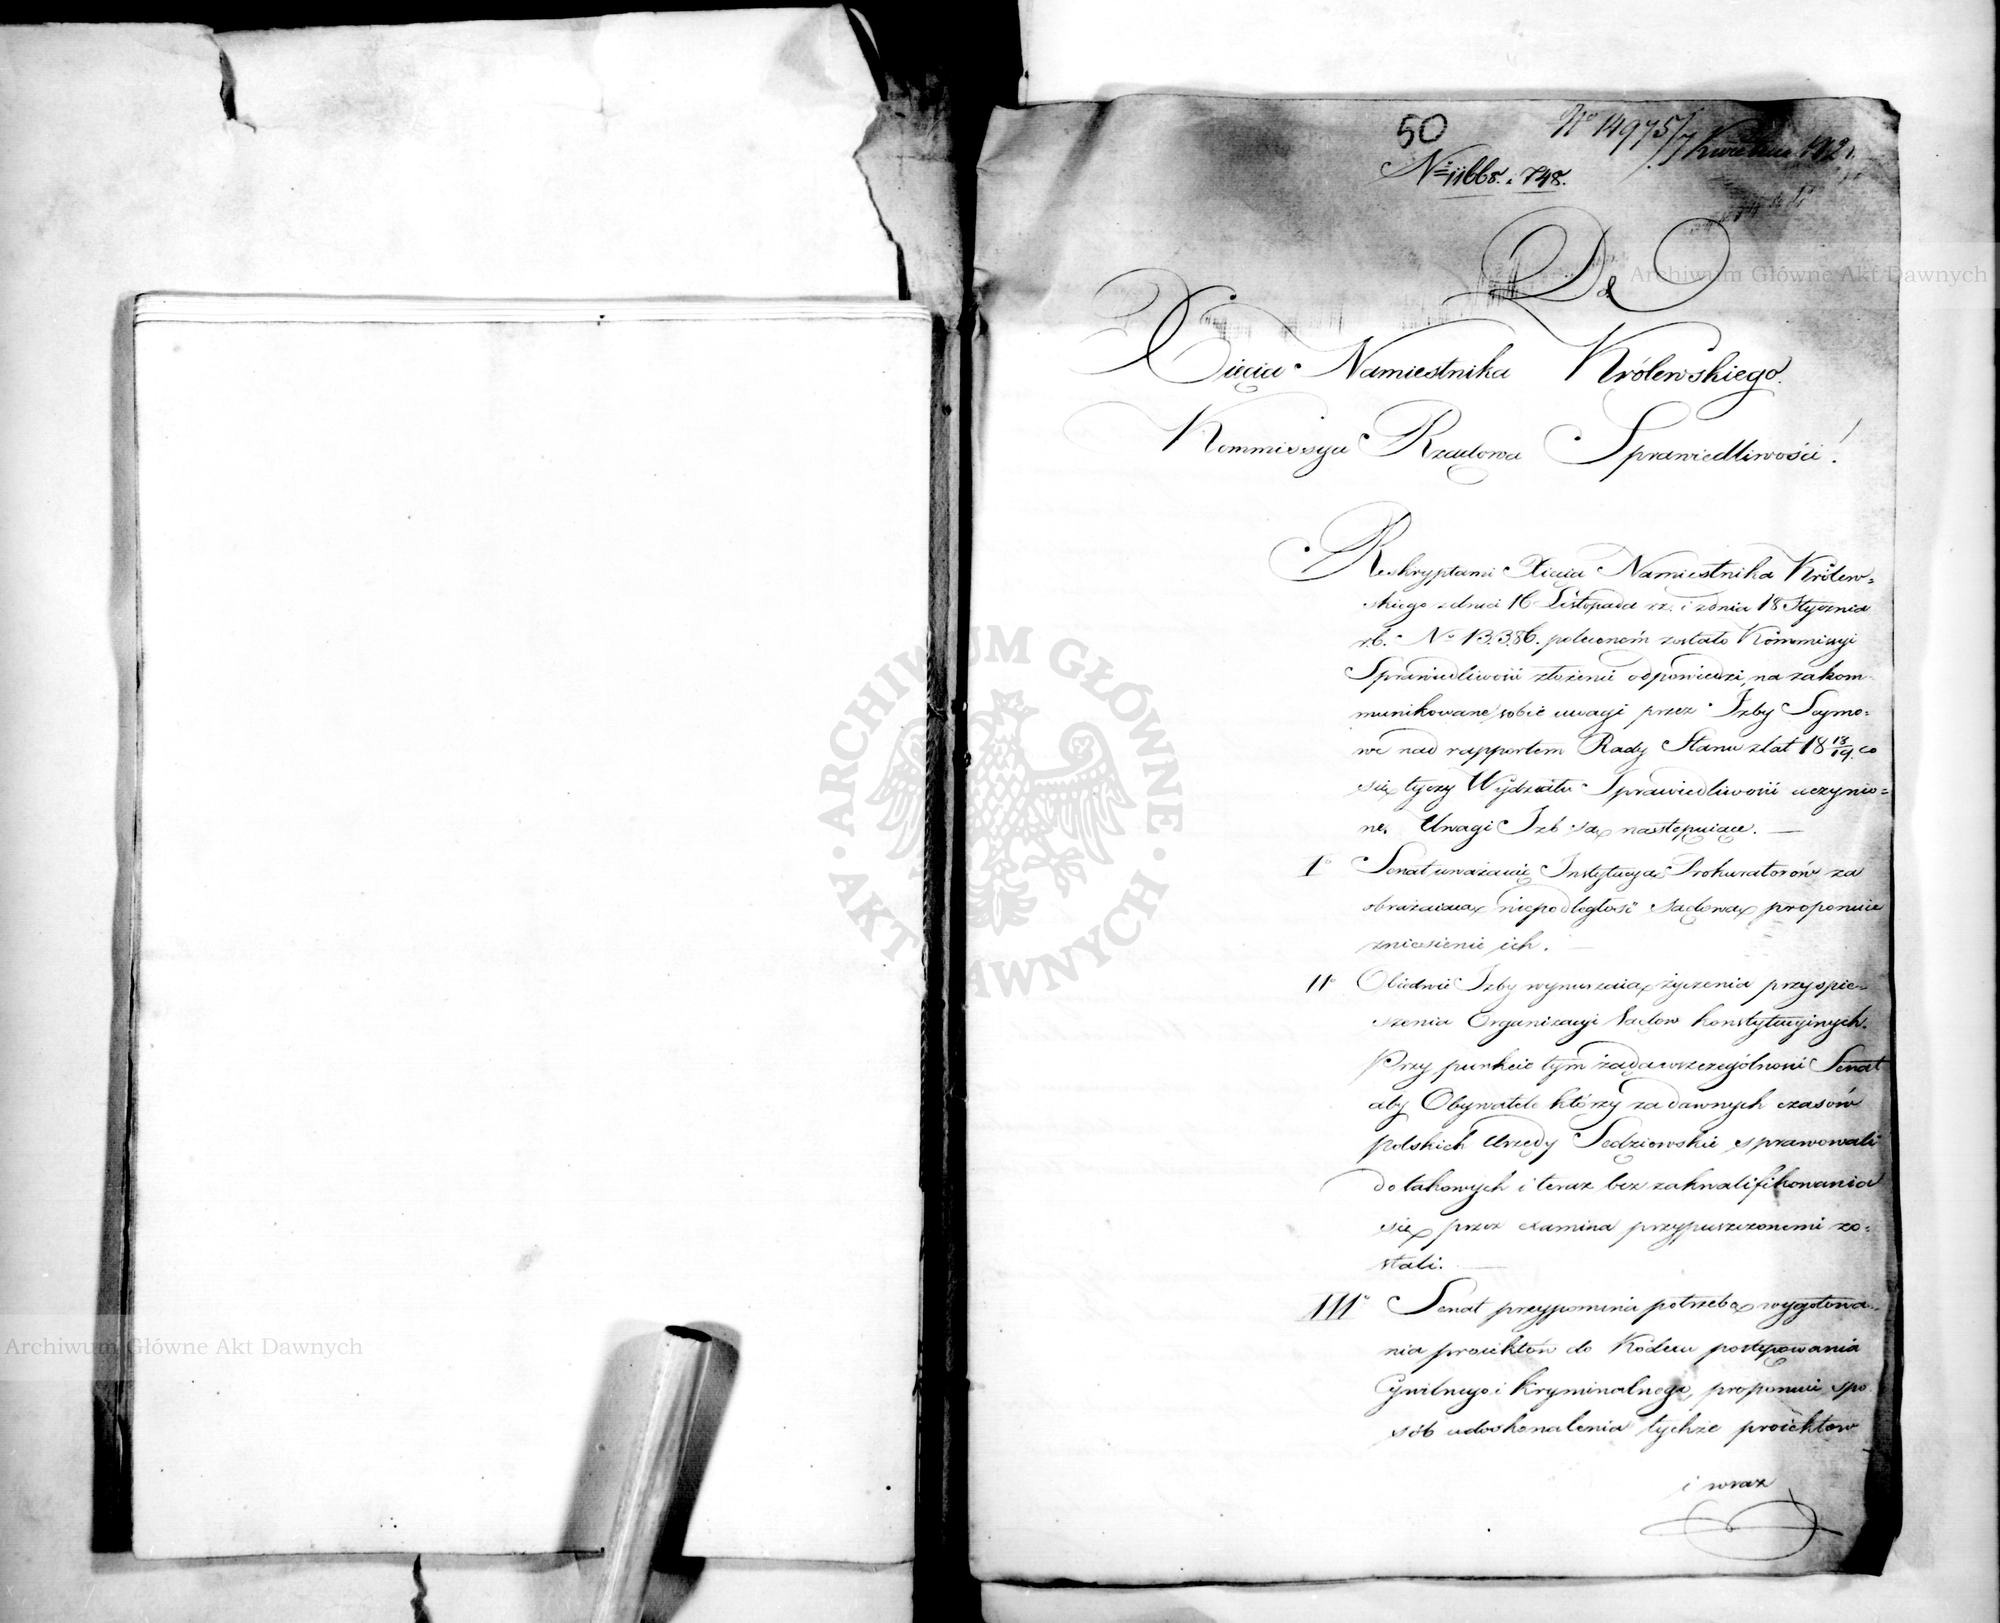 50
No 14975/7 Kwietnia 1821.
No 11668. i 748.
Do
Xięcia Namiestnika Królewskiego.
Kommissya Rządowa Sprawiedliwości!
Reskryptami Xięcia Namiestnika Królew=
skiego z dnia 16 Listopada rz. i z dnia 18 Stycznia
rb. No 13.386. poleconem zostało Kommissyi
Sprawiedliwości złożenie odpowiedzi, na zakom-
munikowane sobie uwagi przez Izby Seymo=
we nad rapportem Rady Stanu z lat 18 18/19. co
się tyczy Wydziału Sprawiedliwości uczynio=
ne. Uwagi Izb są następuiące. —
I° Senat uważaiąc Instytucyą Prokuratorów za
obrażaiącą niepodległość sądową proponuie
zniesienie ich. —
II° Obiedwie Izby wynurzaią życzenia przyspie-
szenia Organizacyi Sądów konstytucyinych.
Przy punkcie tym żąda w szczególności Senat
aby Obywatele którzy za dawnych czasów
polskich Urzędy Sędziowskie sprawowali
do takowych i teraz bez zakwalifikowania
się przez examina przypuszczonemi zo=
stali. —
III° Senat przypomina potrzebę wygotowa-
nia proiektów do Kodexu postępowania
Cywilnego i Kryminalnego, proponuie spo
sób udoskonalenia tychże proiektów
i wraz
ARCHIWUM GŁÓWNE AKT DAWNYCH
Archiwum Główne Akt Dawnych
Archiwum Główne Akt Dawnych